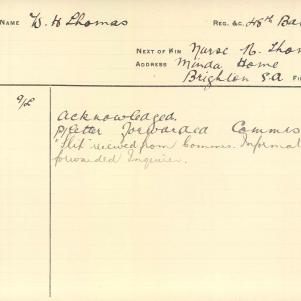 NAME D. H Thomas REG. &C. 48th Ba
NEXT OF KIN Nurse N. Thom
ADDRESS Minda Home
Brighton S.A Fi
Acknowledged.
P/Letter Forwarded Commis
"Slip" received from Commis. Informat
forwarded Inquirer.